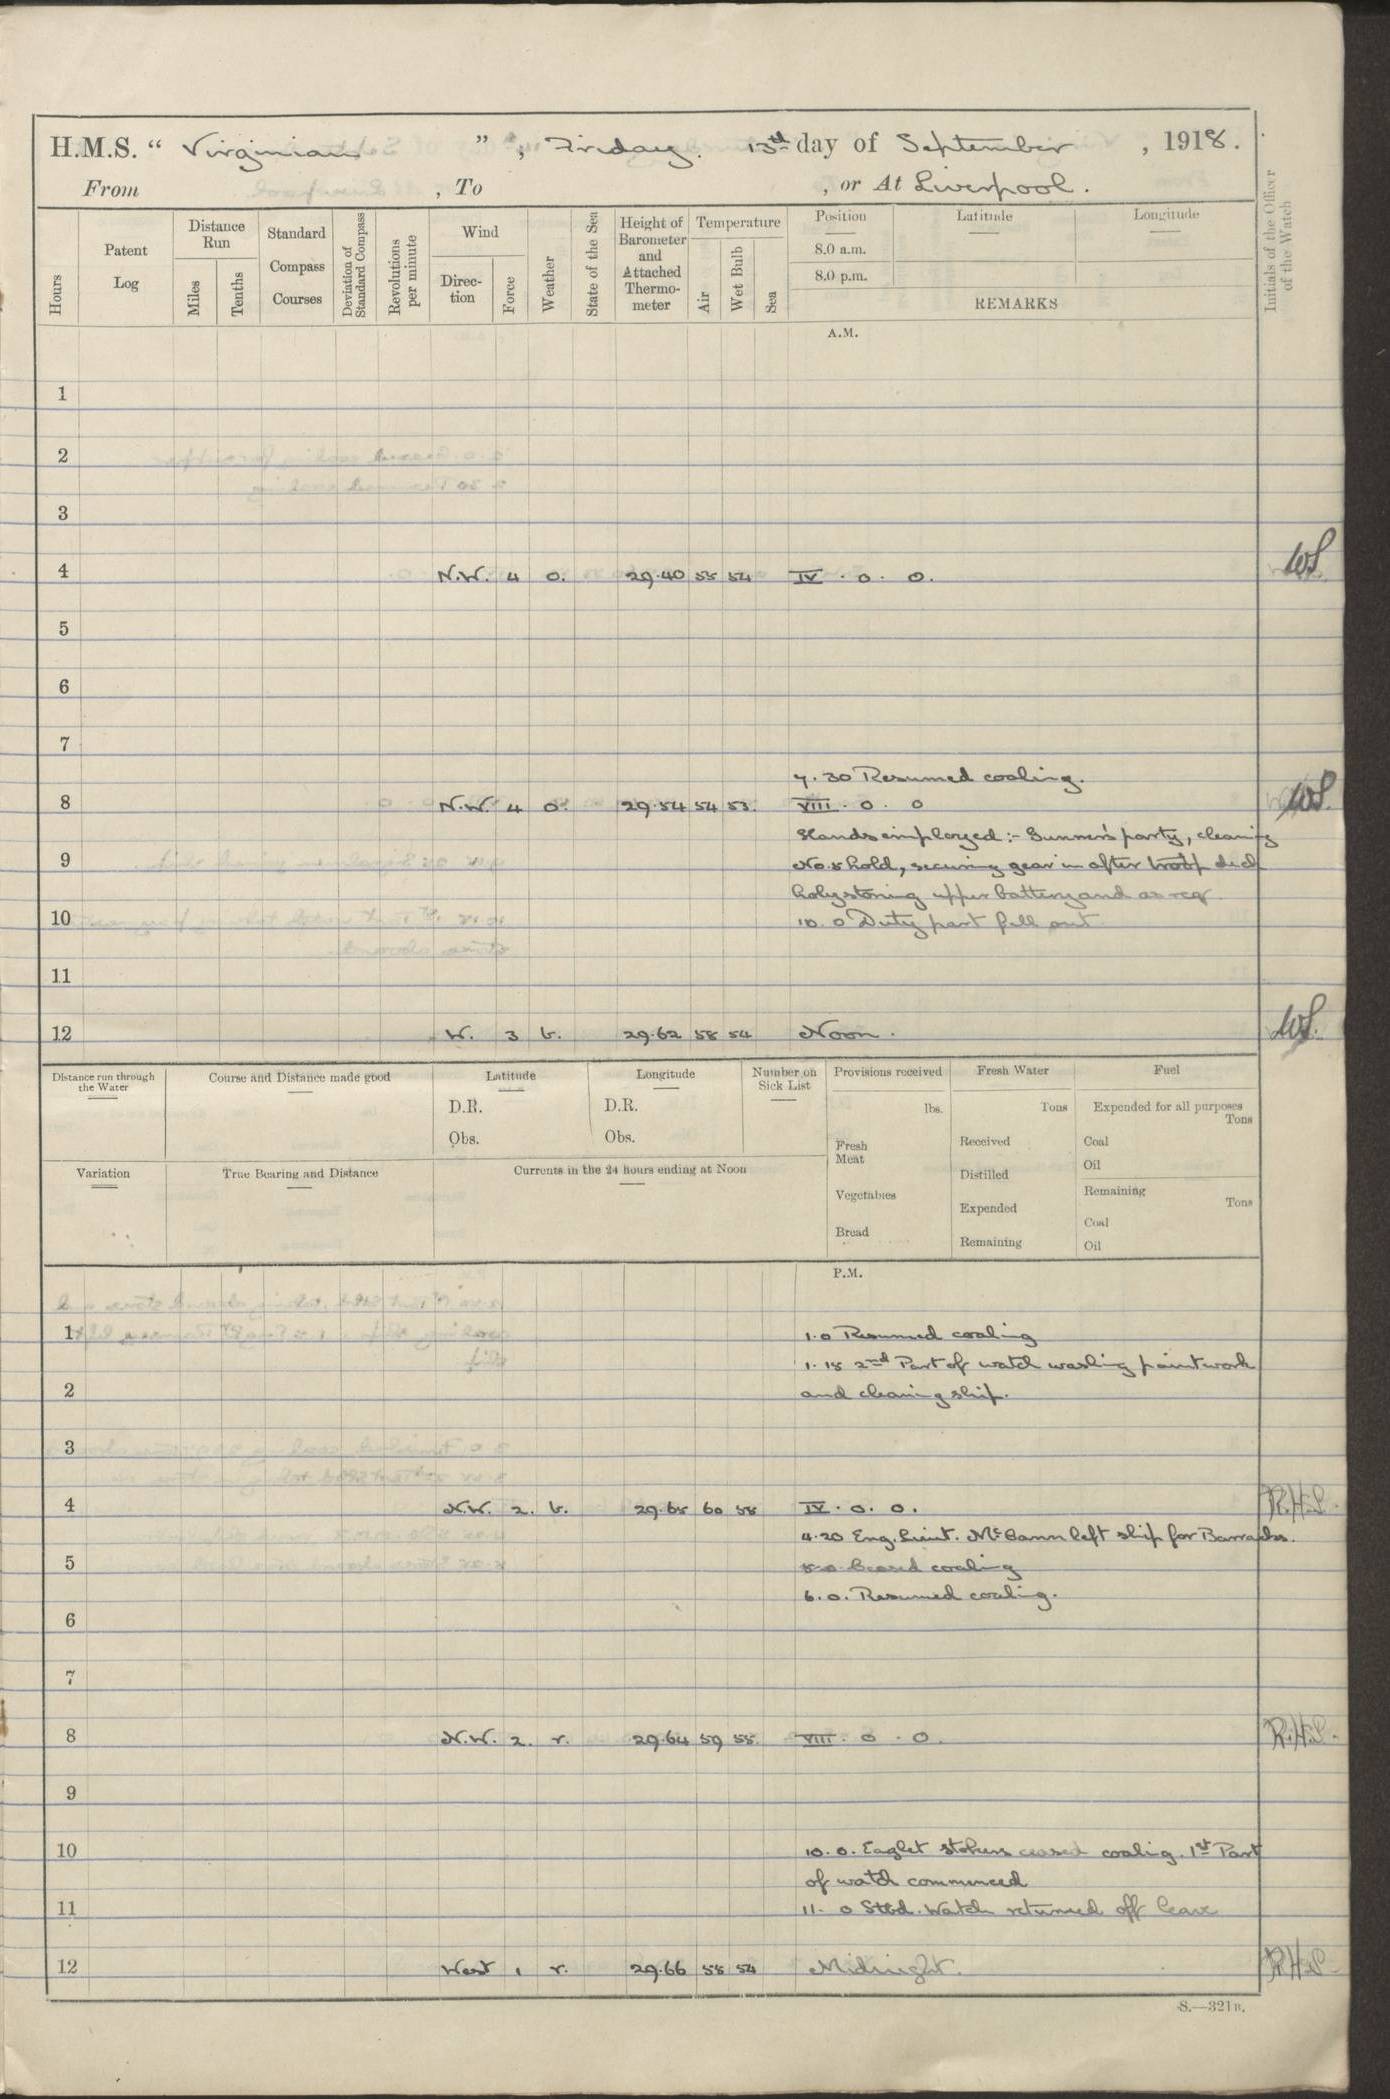 H.M.S. “ Virginian ” , Friday. 13th day of September , 1918.
From , To , or At Liverpool.
Hours
Patent Log
Distance Run
Miles
Tenths
Standard Compass Courses
Deviation of Standard Compass
Revolutions per minute
Wind
Direc-tion
Force
Weather
State of the Sea
Height of Barometer and Attached Thermo-meter
Temperature
Air
Wet Bulb
Sea
Position
8.0 a.m.
8.0 p.m.
Latitude
Longitude
REMARKS
Initials of the Officer of the Watch
A.M.
1
2
3
4 N.W. 4 o. 29.40 55 54 IV . 0. 0. WS.
5
6
7
7.30 Resumed coaling.
8 N.W. 4 o. 29.54 54 53. VIII . 0. 0 WS.
Hands employed:- Gunner's party, cleaning
9 No.5 hold, securing gear in after troop deck
holystoning upper battery and as req.
10 10.0 Duty part fell out
11
12 W. 3 b. 29.62 58 54 Noon. WS.
Distance run through the Water
Course and Distance made good
Latitude
D.R.
Obs.
Longitude
D.R.
Obs.
Number on Sick List
Provisions received
lbs.
Fresh Meat
Vegetables
Bread
Fresh Water
Tons
Received
Distilled
Expended
Remaining
Fuel
Expended for all purposes
Tons
Coal
Oil
Remaining
Tons
Coal
Oil
Variation
True Bearing and Distance
Currents in the 24 hours ending at Noon
P.M.
1 1.0 Resumed coaling
1.15 2nd Part of watch washing paintwork
2 and cleaning ship.
3
4 N.W. 2. b. 29.65 60 55 IV . 0. 0. R.H.S.
4.20 Eng. Lieut. McCann left ship for Barracks.
5 5.0. Ceased coaling
6.0. Resumed coaling.
6
7
8 N.W. 2. r. 29.64 59 55. VIII . 0 . 0. R.H.S.
9
10 10.0. Eaglet stokers ceased coaling. 1st Part
of watch commenced
11 11.0 Stbd. Watch returned off leave
12 West 1 r. 29.66 55 54 Midnight. R.H.S.
S.—321B.